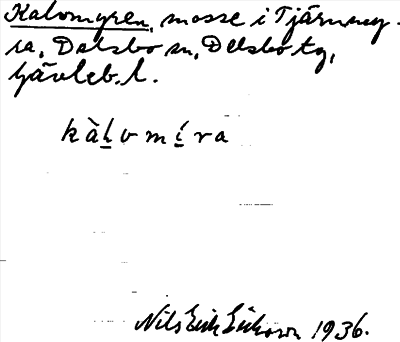 Kalvmyren, mosse i Tjärnmy-
ra, Delsbo sn, Delsbo tg,
Gävleb. l.
kàl̲vmí̲ra
Nils Erik Eriksson 1936.